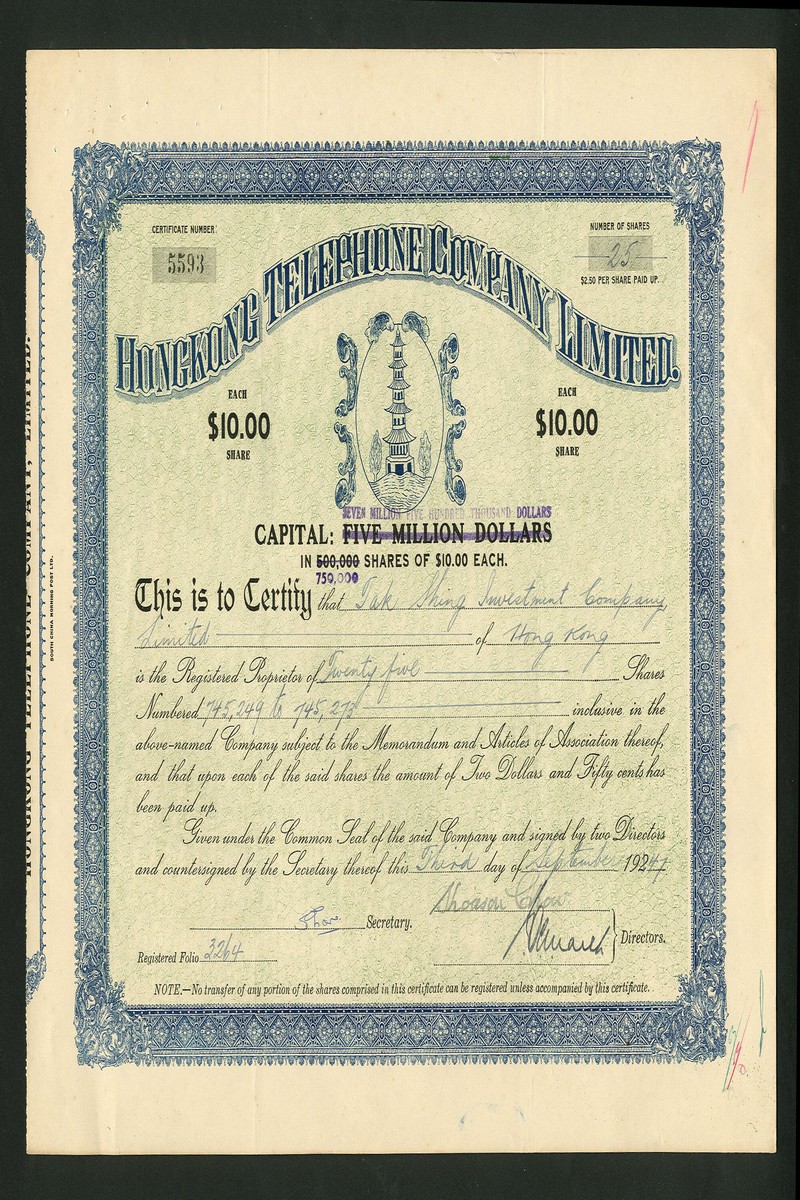 CERTIFICATE NUMBER
5593
NUMBER OF SHARES
25
$2.50 PER SHARE PAID UP.
HONGKONG TELEPHONE COMPANY LIMITED.
EACH
$10.00
SHARE
EACH
$10.00
SHARE
SEVEN MILLION FIVE HUNDRED THOUSAND DOLLARS
CAPITAL: FIVE MILLION DOLLARS
IN 500,000 SHARES OF $10.00 EACH.
750,000
This is to Certify that Tak Shing Investment Company,
Limited of Hong Kong
is the Registered Proprietor of Twenty five Shares
Numbered 745,249 to 745,273 inclusive in the
above-named Company subject to the Memorandum and Articles of Association thereof,
and that upon each of the said shares the amount of Two Dollars and Fifty cents has
been paid up.
Given under the Common Seal of the said Company and signed by two Directors
and countersigned by the Secretary thereof this Third day of September 1941
Secretary.
Directors.
Registered Folio 3264
NOTE.—No transfer of any portion of the shares comprised in this certificate can be registered unless accompanied by this certificate.
SOUTH CHINA MORNING POST LTD.
HONGKONG TELEPHONE COMPANY, LIMITED.